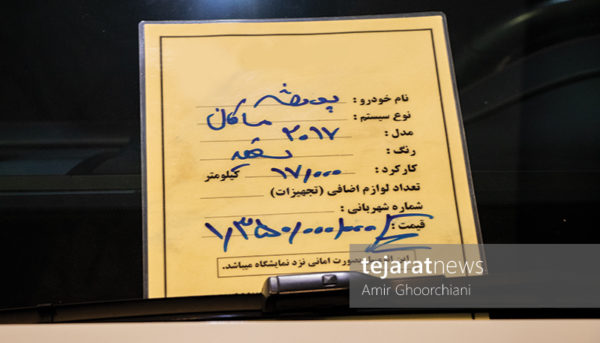 نام خودرو : پورشه
نوع سیستم : ماکان
مدل : ۲۰۱۷
رنگ : سفید
کارکرد : ۱۷/۰۰۰ کیلومتر
تعداد لوازم اضافی (تجهیزات)
شماره شهربانی :
قیمت : ۱/۳۵۰/۰۰۰/۰۰۰
بصورت امانی نزد نمایشگاه میباشد.
tejaratnews
Amir Ghoorchiani